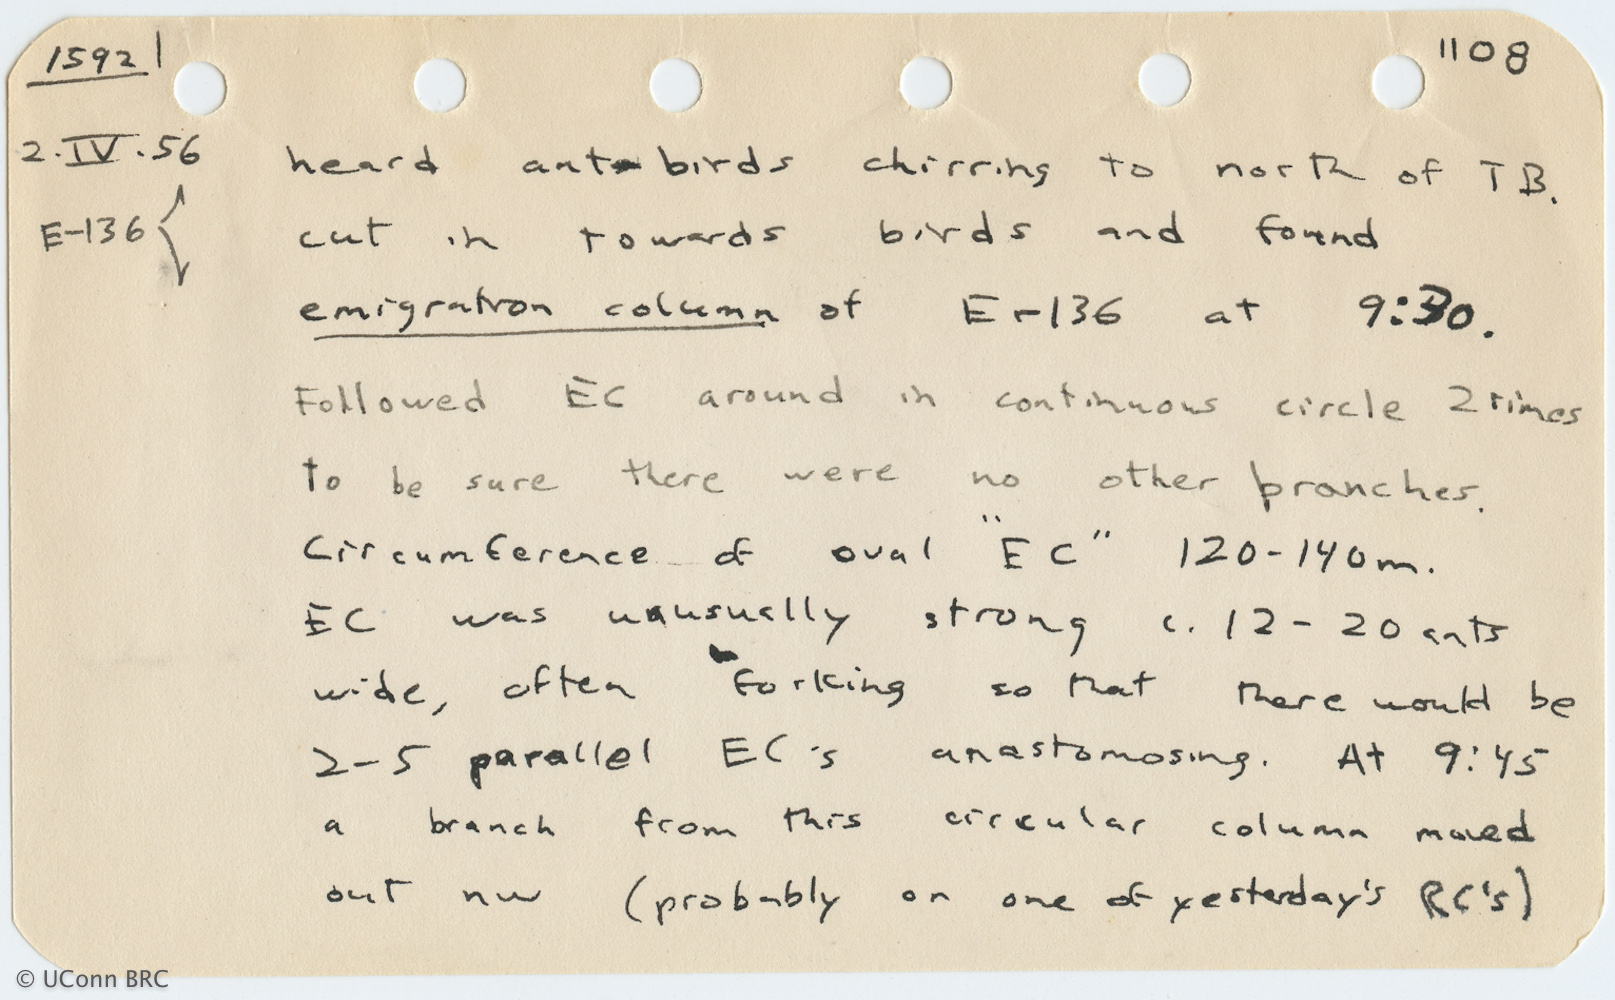 1592
1108
2.IV.56 heard ant-birds chirring to north of TB.
E-136 cut in towards birds and found
emigration column of E-136 at 9:30.
Followed EC around in continuous circle 2 times
to be sure there were no other branches.
Circumference of oval "EC" 120-140m.
EC was unusually strong c. 12-20 ants
wide, often forking so that there would be
2-5 parallel EC's anastomosing. At 9:45
a branch from this circular column moved
out nw (probably on one of yesterday's RC's)
© UConn BRC